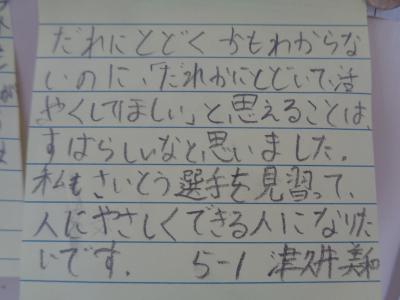 だれにとどくかもわからな
いのに、「だれかにとどいて、活
やくしてほしい」と、思えることは、
すばらしいなと思いました。
私もさいとう選手を見習って、
人にやさしくできる人になりた
いです。 5-1 津久井美和